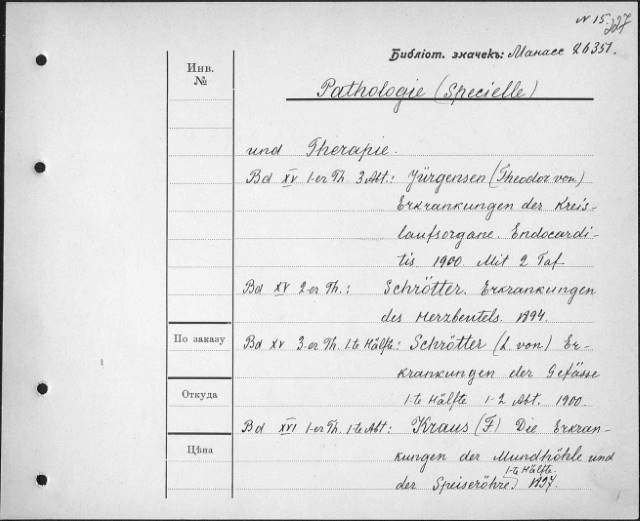 N 15. 227
Библіот. значекъ: Манасс 26351.
Инв.
№
Pathologie (Specielle)
und Therapie.
Bd XV 1-er Th. 3 Abt.: Jürgensen (Theodor von)
Erkrankungen der Kreis-
laufsorgane. Endocardi-
tis. 1900. Mit 2 Taf.
Bd XV 2-er Th.: Schrötter. Erkrankungen
des Herzbeutels. 1894.
По заказу
Bd XV 3-er Th. 1-te Hälfte: Schrötter (L. von) Er-
krankungen der Gefässe
Откуда
1-te Hälfte 1-2 Abt. 1900.
Bd XVI 1-er Th. 1-te Abt: Kraus (F) Die Erkran-
Цѣна
kungen der Mundhöhle und
der Speiseröhre 1-te Hälfte. 1897.